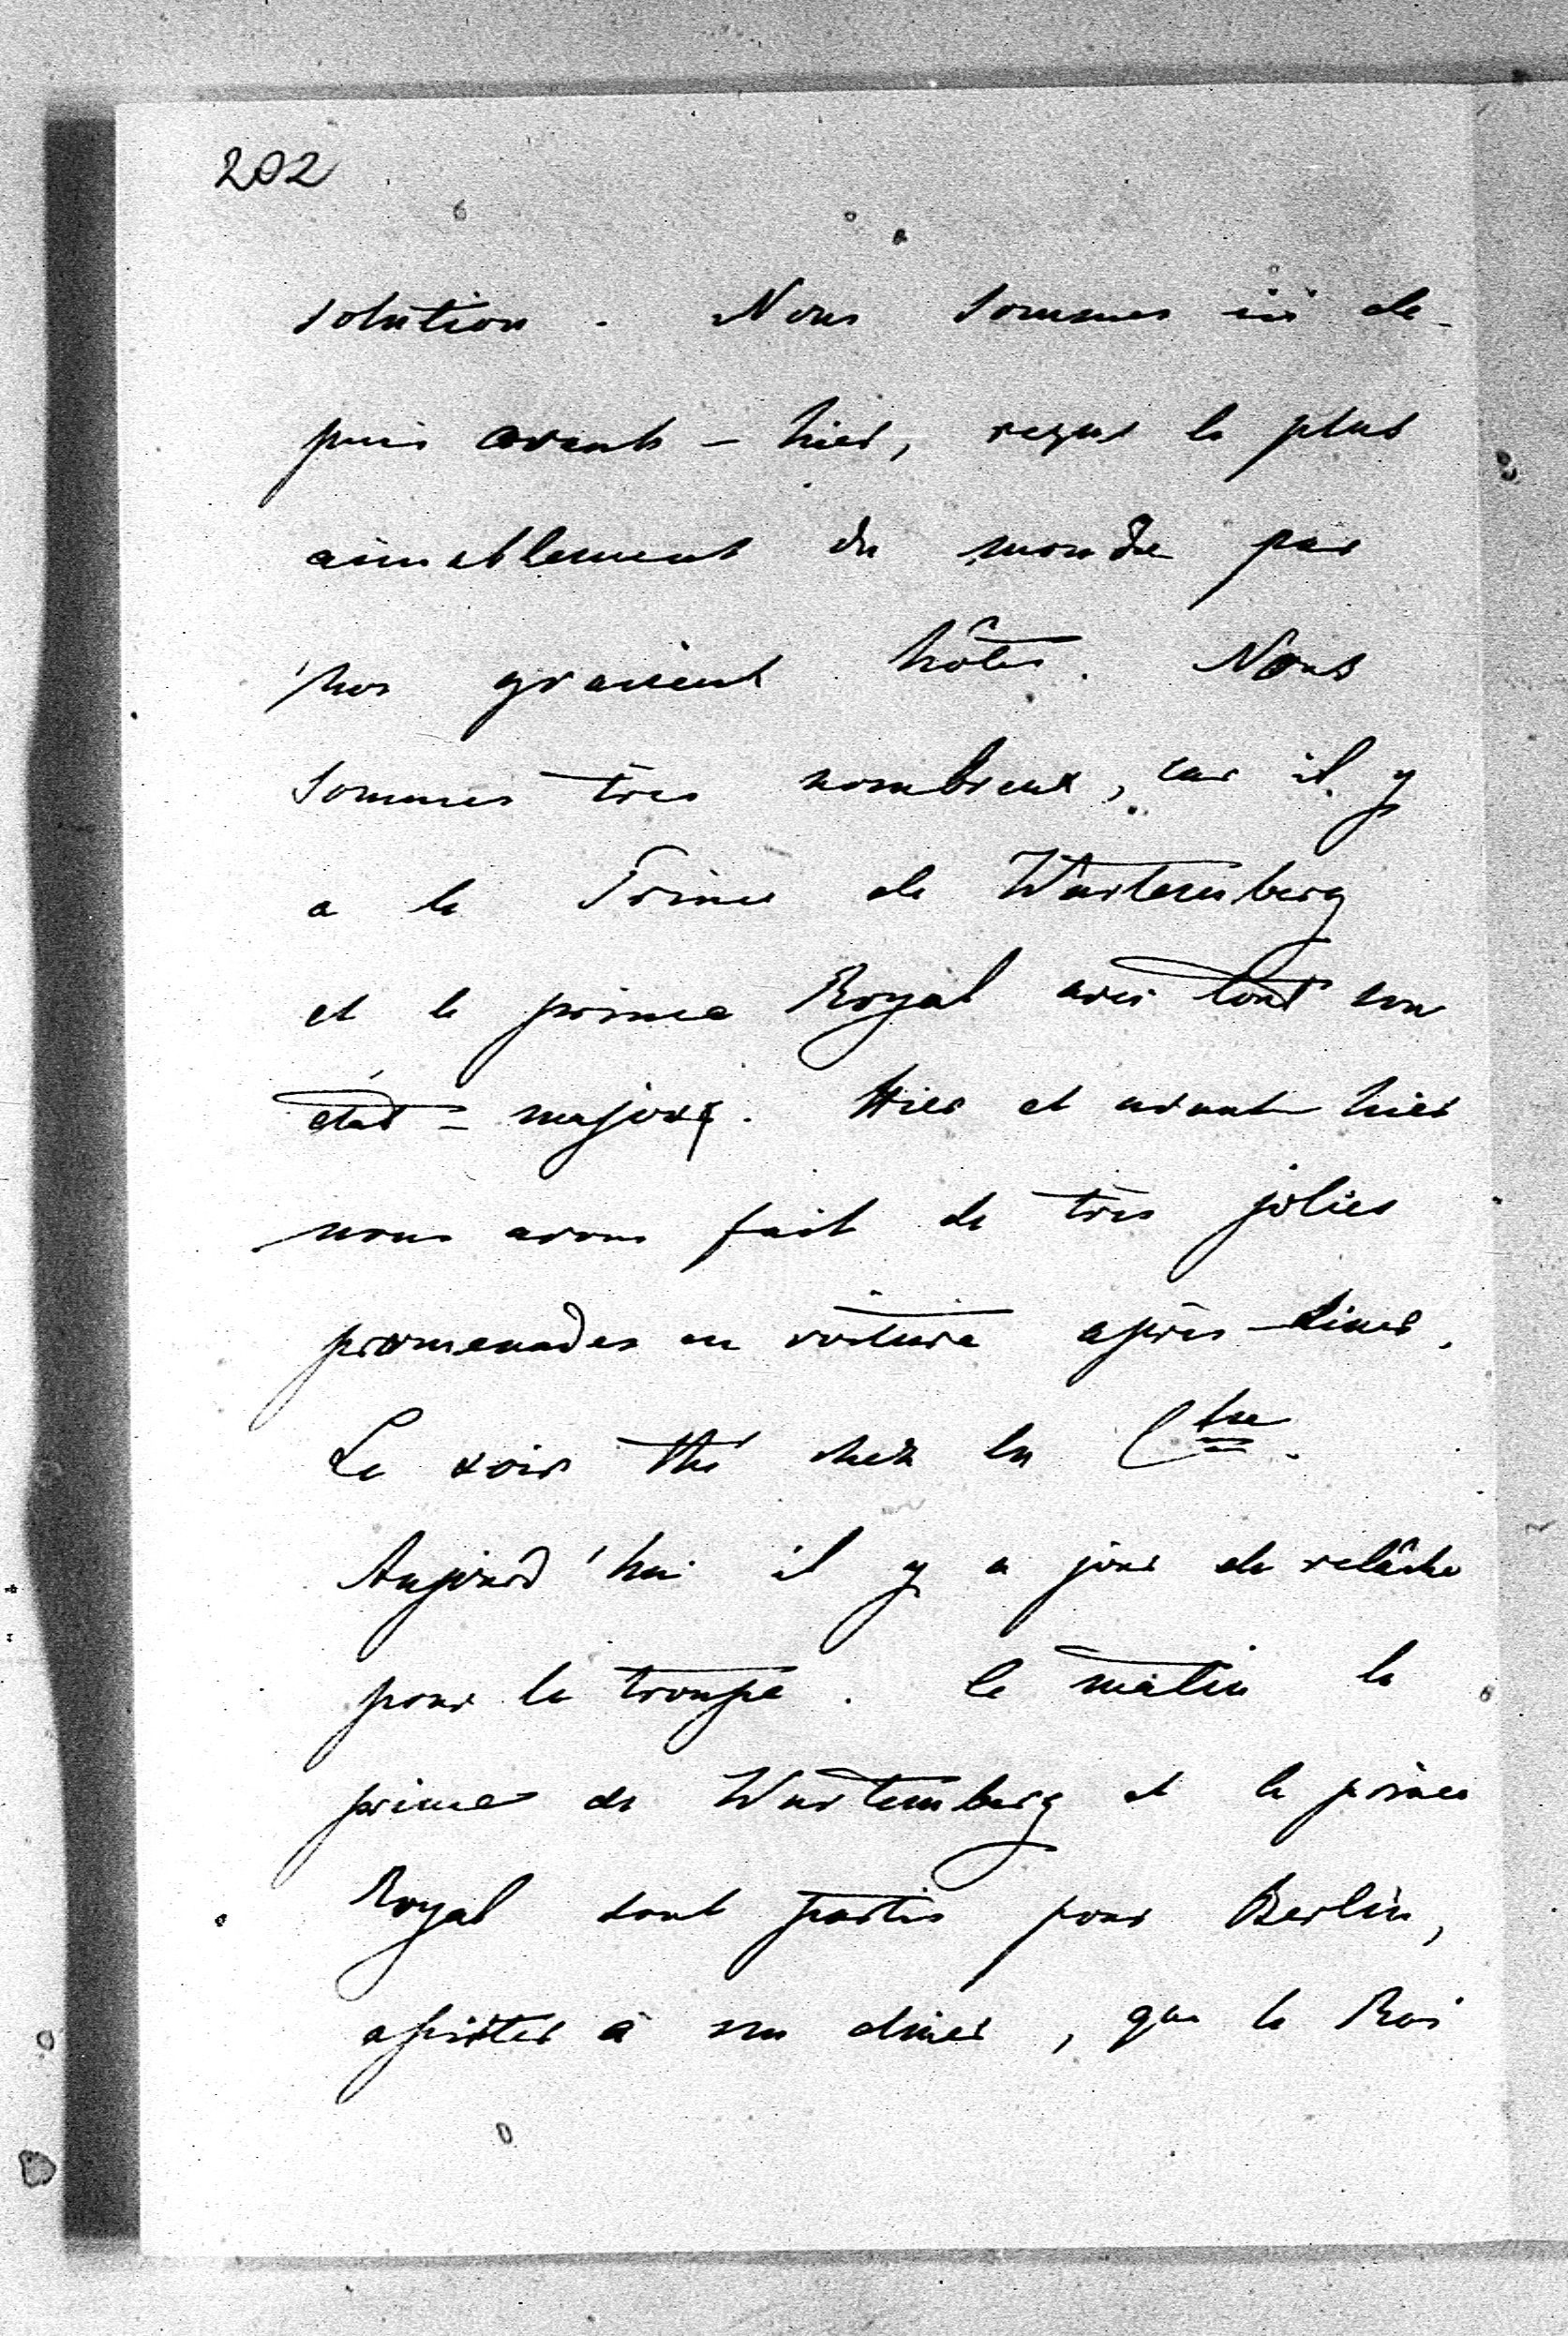 202
solution. Nous sommes ici de-
puis avant-hier, reçus le plus
aimablement du monde par
nos gracieux hôtes. Nous
sommes très nombreux, car il y
a le Prince de Würtemberg
et le prince Royal avec tout son
état-major. Hier et avant hier
nous avons fait de très jolies
promenades en voiture après-diner.
Le soir thé chez la Ctsse.
Aujourd'hui il y a jour de relâche
pour la troupe. Le matin le
prince de Wurtemberg et le prince
Royal sont partis pour Berlin,
assister à un diner, que le Roi